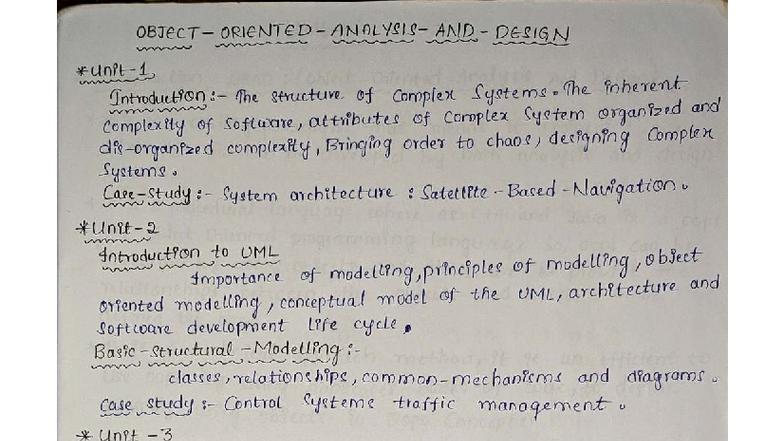 OBJECT - ORIENTED - ANALYSIS - AND - DESIGN
* Unit-1
Introduction :- The structure of Complex Systems. The inherent
Complexity of Software, attributes of Complex System organized and
dis-organized complexity, Bringing order to chaos, designing Complex
Systems.
Case-Study :- System architecture : Satellite-Based-Navigation.
* Unit-2
Introduction to UML
Importance of modelling, principles of modelling, object
oriented modelling, conceptual model of the UML, architecture and
Software development life cycle.
Basic-Structural-Modelling :-
classes, relationships, common-mechanisms and diagrams.
Case study :- Control Systems traffic management.
* Unit -3